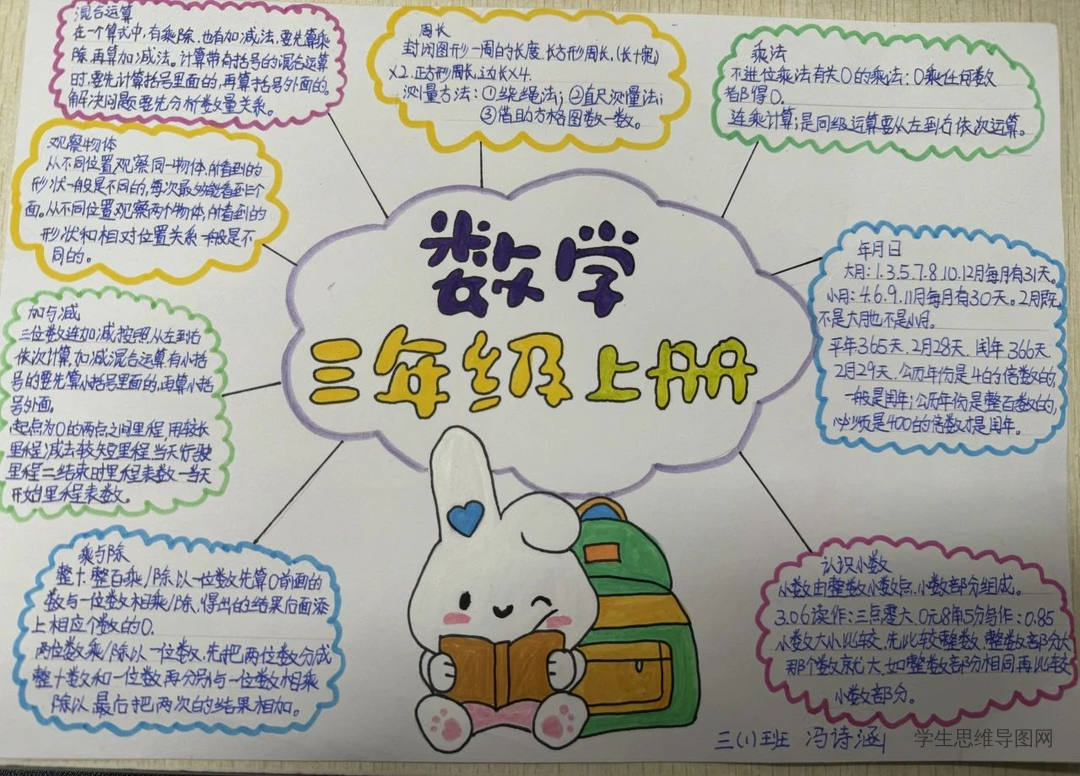 混合运算
在一个算式中,有乘除,也有加减法,要先算乘
除,再算加减法。计算带有括号的混合运算
时,要先计算括号里面的,再算括号外面的。
解决问题要先分析数量关系。
周长
封闭图形一周的长度.长方形周长,(长十宽)
×2.正方形周长,边长×4.
测量方法:①绕绳法;②直尺测量法;
③借助方格图数一数。
乘法
不进位乘法有关0的乘法:0乘任何数
都得0.
连乘计算;是同级运算要从左到右依次运算。
观察物体
从不同位置观察同一物体,所看到的
形状一般是不同的,每次最多能看到三个
面。从不同位置观察两个物体,所看到的
形状和相对位置关系一般是不
同的。
数学
三年级上册
年月日
大月:1.3.5.7.8.10.12月每月有31天。
小月:4.6.9.11月每月有30天。2月既
不是大月也不是小月。
平年365天.2月28天.闰年366天.
2月29天.公历年份是4的倍数的,
一般是闰年;公历年份是整百数的,
必须是400的倍数才是闰年。
加与减
三位数连加减按照从左到右
依次计算,加减混合运算有小括
号的要先算小括号里面的,再算小括
号外面。
起点为0的两点之间里程,用较长
里程减法较短里程.当天行驶
里程二结束时里程表数一当天
开始里程表数。
乘与除
整十.整百乘/除以一位数先算0前面的
数与一位数相乘/除,得出的结果后面添
上相应个数的0.
两位数乘/除以一位数.先把两位数分成
整十数和一位数再分别与一位数相乘
除以最后把两次的结果相加。
认识小数
小数由整数小数点.小数部分组成。
3.06读作:三点零六.0元8角5分写作:0.85
小数大小比较.先比较整数.整数部分大
那个数就大.如整数部分相同再比较
小数部分。
三(1)班 冯诗涵
学生思维导图网